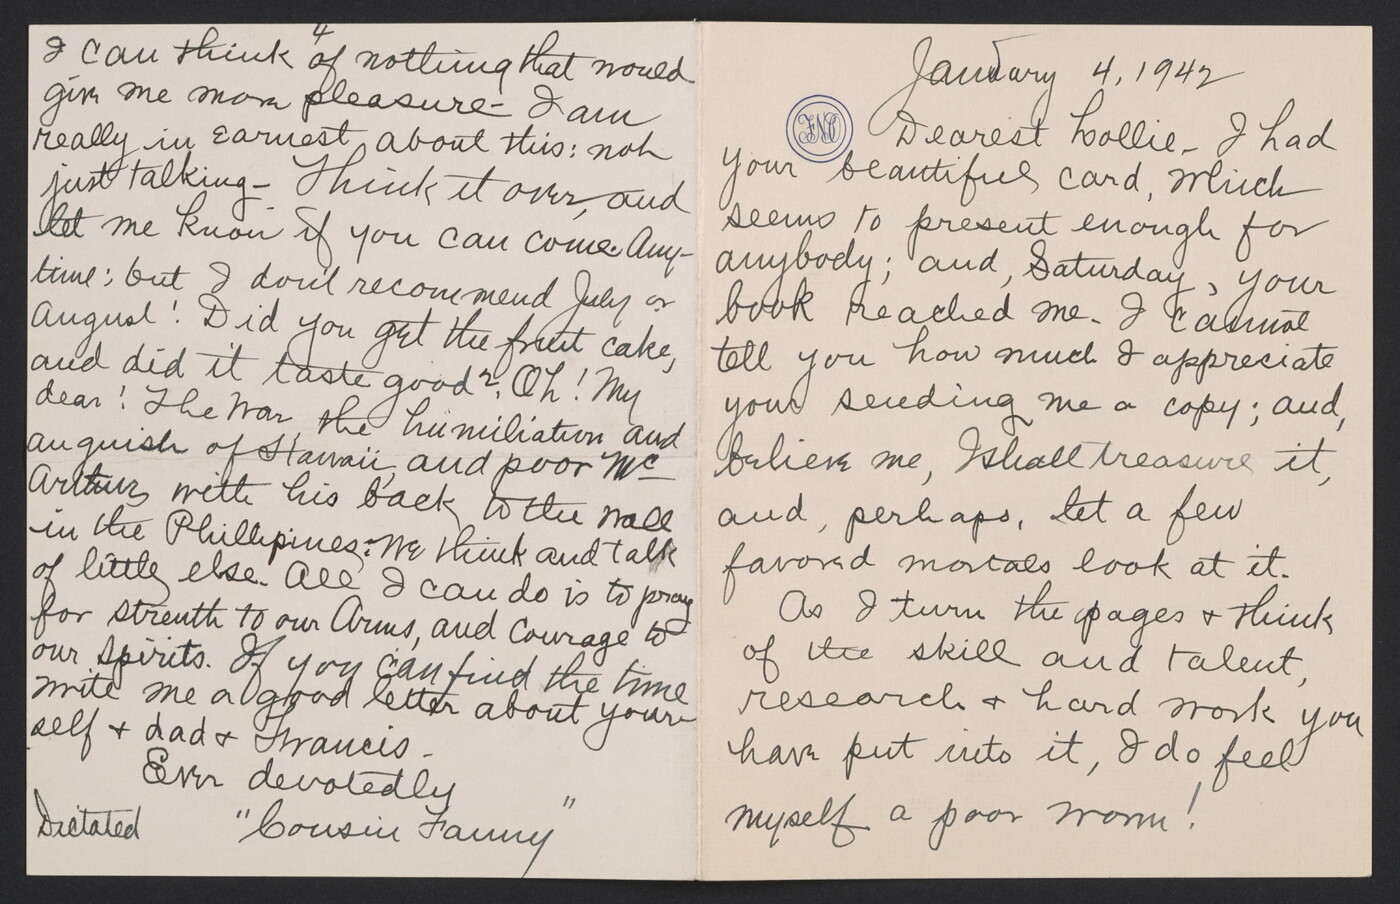 4
I can think of nothing that would
give me more pleasure - I am
really in earnest about this: not
just talking - Think it over, and
let me know if you can come Any-
time; but I don't recommend July or
August! Did you get the fruit cake,
and did it taste good? Oh! My
dear! The War the humiliation and
anguish of Hawaii, and poor Mc
Arthur with his back to the wall
in the Phillipines: We think and talk
of little else. All I can do is to pray
for strenth to our Arms, and courage to
our spirits. If you can find the time
write me a good letter about your-
self & dad & Francis -
Ever devotedly
Dictated "Cousin Fanny"
January 4, 1942
FNC
Dearest Lollie - I had
your beautiful card, which
seems to present enough for
anybody; and, Saturday, your
book reached me. I cannot
tell you how much I appreciate
your sending me a copy; and,
believe me, I shall treasure it,
and, perhaps, let a few
favored mortals look at it.
As I turn the pages & think
of the skill and talent,
research & hard work you
have put into it, I do feel
myself a poor worm!